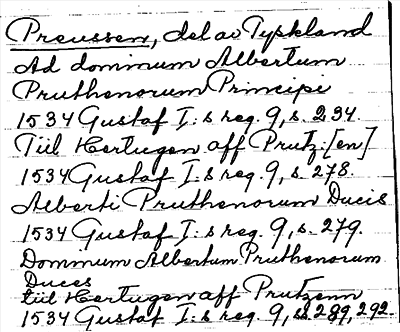 Preussen, del av Tyskland
Ad dominum Albertum
Pruthenorum Principi
1534 Gustaf I:s reg. 9, s. 234.
Till Hertugen aff Prutz:[en]
1534 Gustaf I:s reg. 9, s. 278.
Alberti Pruthenorum Ducis
1534 Gustaf I:s reg. 9, s. 279.
Dominum Albertum Pruthenorum
Duces
till Hertugen aff Prutzenn
1534 Gustaf I:s reg. 9, ss. 289, 292.